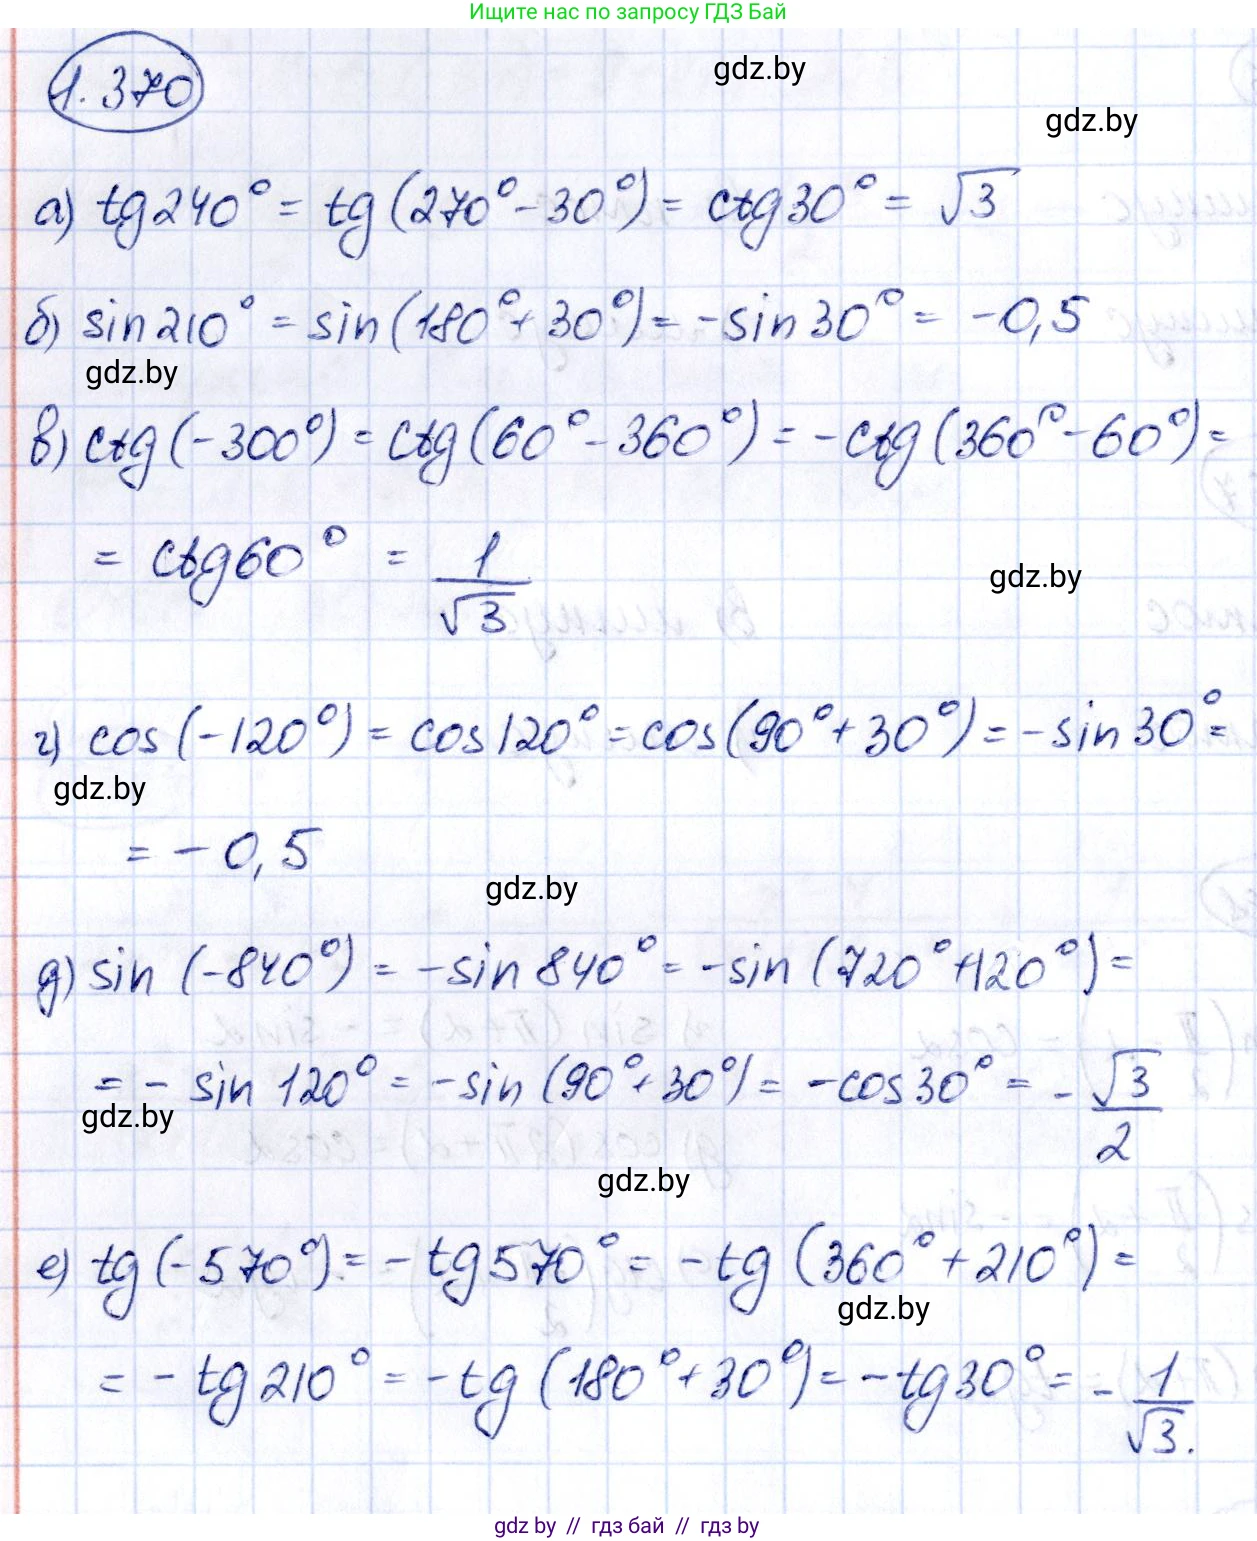 Ищите нас по запросу ГДЗ Бай
1.370
gdz.by
gdz.by
а) tg 240° = tg (270° - 30°) = ctg 30° = √3
б) sin 210° = sin (180° + 30°) = - sin 30° = -0,5
gdz.by
в) ctg (-300°) = ctg (60° - 360°) = - ctg (360° - 60°) =
= ctg 60° = 1/√3
gdz.by
г) cos (-120°) = cos 120° = cos (90° + 30°) = - sin 30° =
gdz.by
= - 0,5
gdz.by
д) sin (-840°) = - sin 840° = - sin (720° + 120°) =
= - sin 120° = - sin (90° + 30°) = - cos 30° = - √3/2
gdz.by
gdz.by
е) tg (-570°) = - tg 570° = - tg (360° + 210°) =
gdz.by
= - tg 210° = - tg (180° + 30°) = - tg 30° = - 1/√3.
gdz by // гдз бай // гдз by